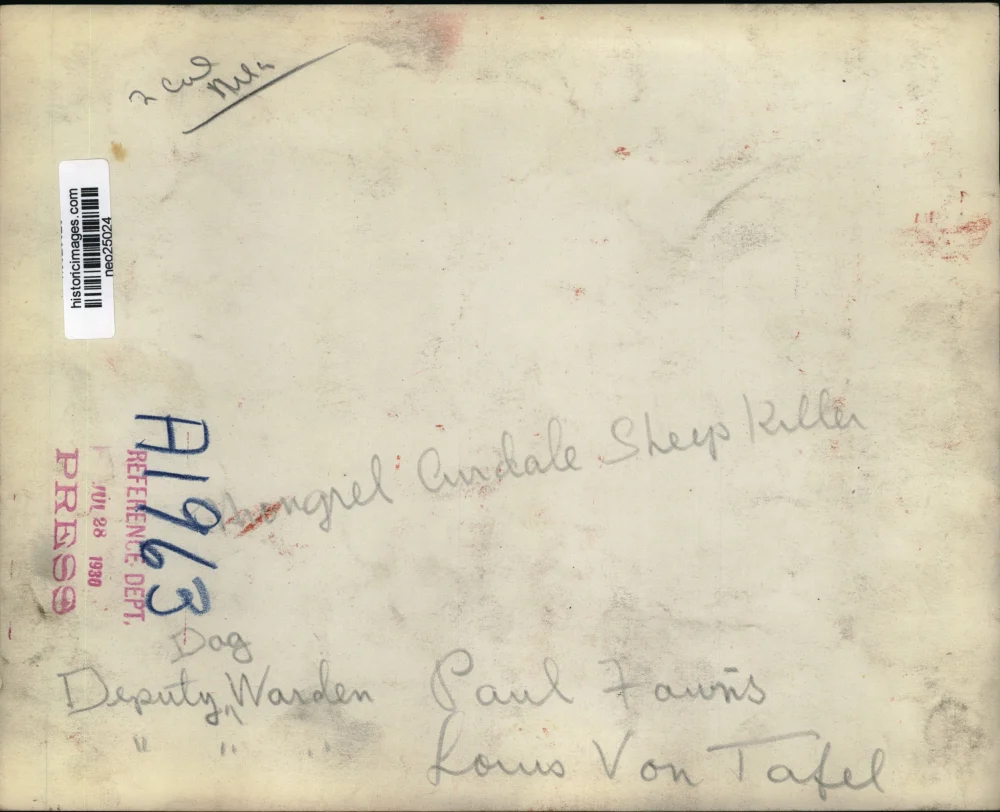 2 Col
historicimages.com
neo25024
A1963
REFERENCE DEPT.
JUL 28 1930
PRESS
Mongrel Airdale Sheep Killer
Dog
Deputy Warden Paul Fawns
" " " Louis Von Tafel